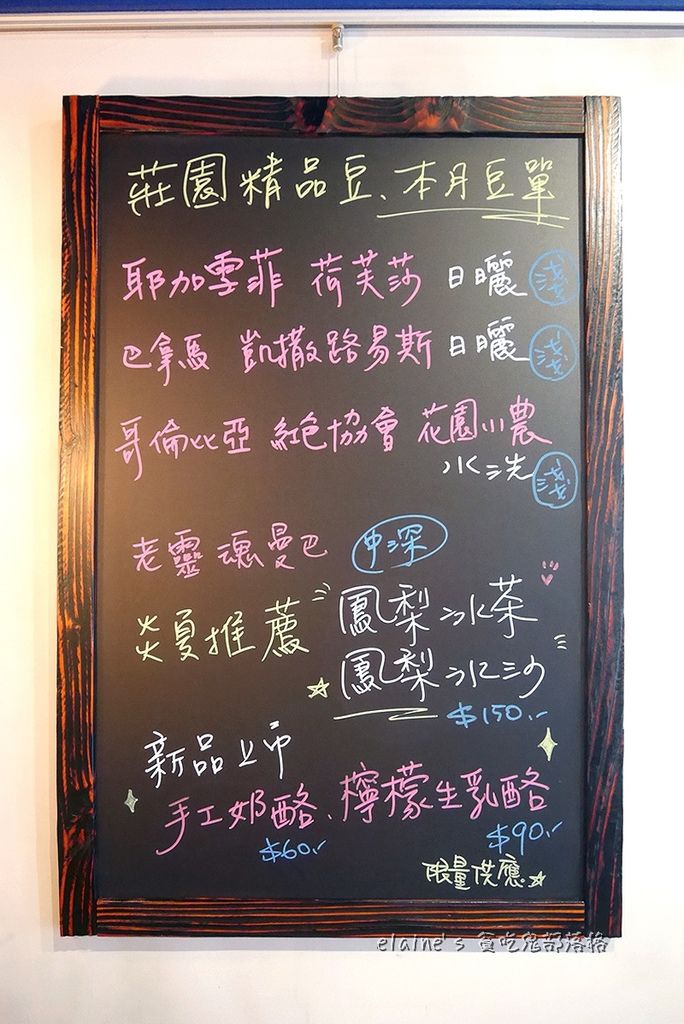 莊園精品豆、本月豆單
耶加雪菲 荷芙莎 日曬 淺
巴拿馬 凱撒路易斯 日曬 淺
哥倫比亞 紅色協會 花園小農
水洗 淺
老靈魂曼巴 中深
炎夏推薦 鳳梨冰茶
鳳梨冰沙
$150.-
新品上市
手工奶酪、檸檬生乳酪
$60.- $90.-
限量供應.
elaine's 貪吃鬼部落格